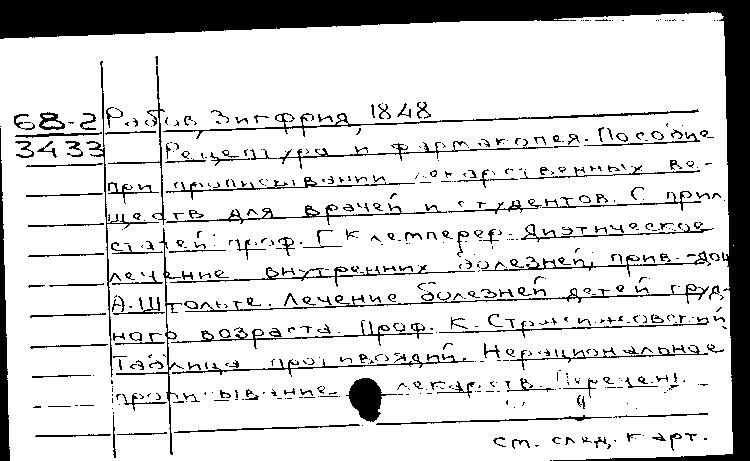 68-2 Рабов, Зигфрид, 1848
3433 Рецептура и фармакопея. Пособие
при прописывании лекарственных ве-
ществ для врачей и студентов. С прил
статей: проф. Г Клемперер. Диэтическое
лечение внутренних болезней, прив.-доц
А. Штольте. Лечение болезней детей груд-
ного возраста. Проф. К. Стржижовский
Таблица противоядий. Нерациональное
прописывание лекарств. Перечень
см. след. карт.